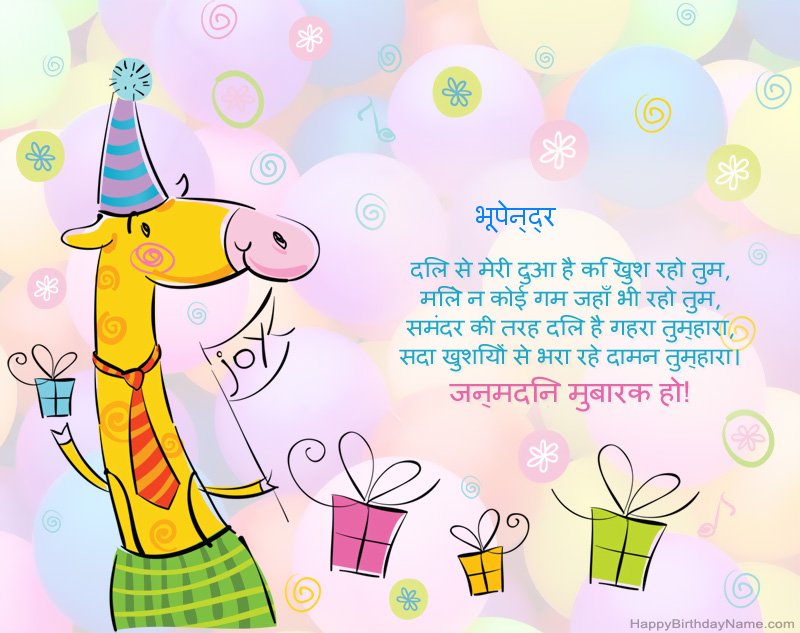 भूपेन्द्र
दिल से मेरी दुआ है कि खुश रहो तुम,
मिले न कोई गम जहाँ भी रहो तुम,
समंदर की तरह दिल है गहरा तुम्हारा,
सदा खुशियों से भरा रहे दामन तुम्हारा।
जन्मदिन मुबारक हो!
joy
HappyBirthdayName.com